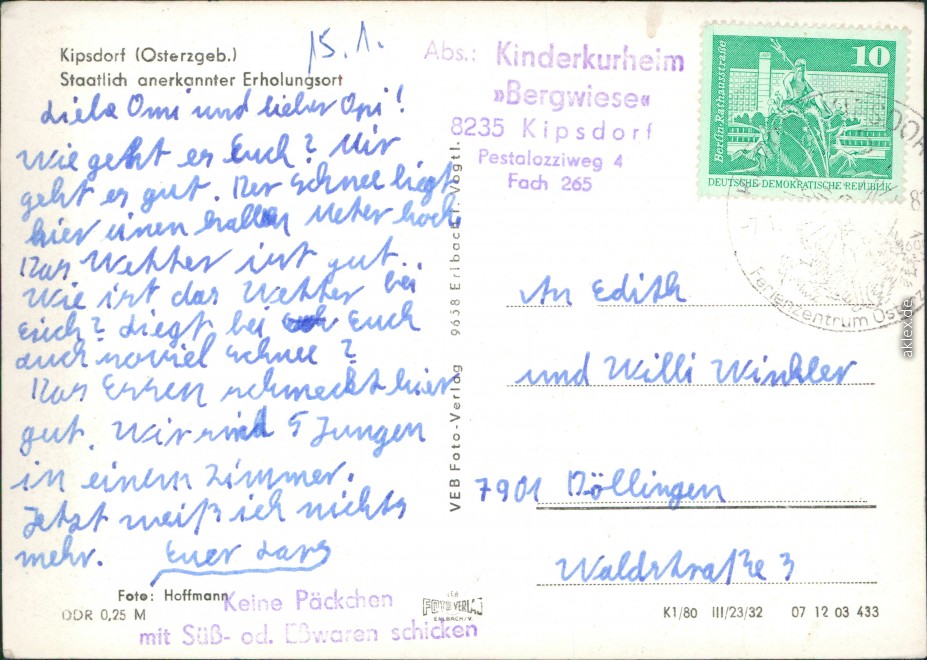 Kipsdorf (Osterzgeb.)
Staatlich anerkannter Erholungsort
15. 1.
Liebe Omi und lieber Opi!
Wie geht es Euch? Mir
geht es gut. Der Schnee liegt
hier einen halben Meter hoch
Das Wetter ist gut.
Wie ist das Wetter bei
Euch? Liegt bei Euch
auch soviel Schnee?
Das Essen schmeckt hier
gut. Wir sind 5 Jungen
in einem Zimmer.
Jetzt weiß ich nichts
mehr. Euer Lars
Foto: Hoffmann
DDR 0,25 M
Keine Päckchen
mit Süß- od. Eßwaren schicken
VEB Foto-Verlag 9658 Erlbach i. Vogtl.
VEB
FOTO VERLAG
ERLBACH/V.
Abs.: Kinderkurheim
»Bergwiese«
8235 Kipsdorf
Pestalozziweg 4
Fach 265
10
Berlin-Rathausstraße
DEUTSCHE DEMOKRATISCHE REPUBLIK
Ferienzentrum
An Edith
und Willi Winkler
7901 Döllingen
Waldstraße 3
K1/80 III/23/32 07 12 03 433
aklex.de